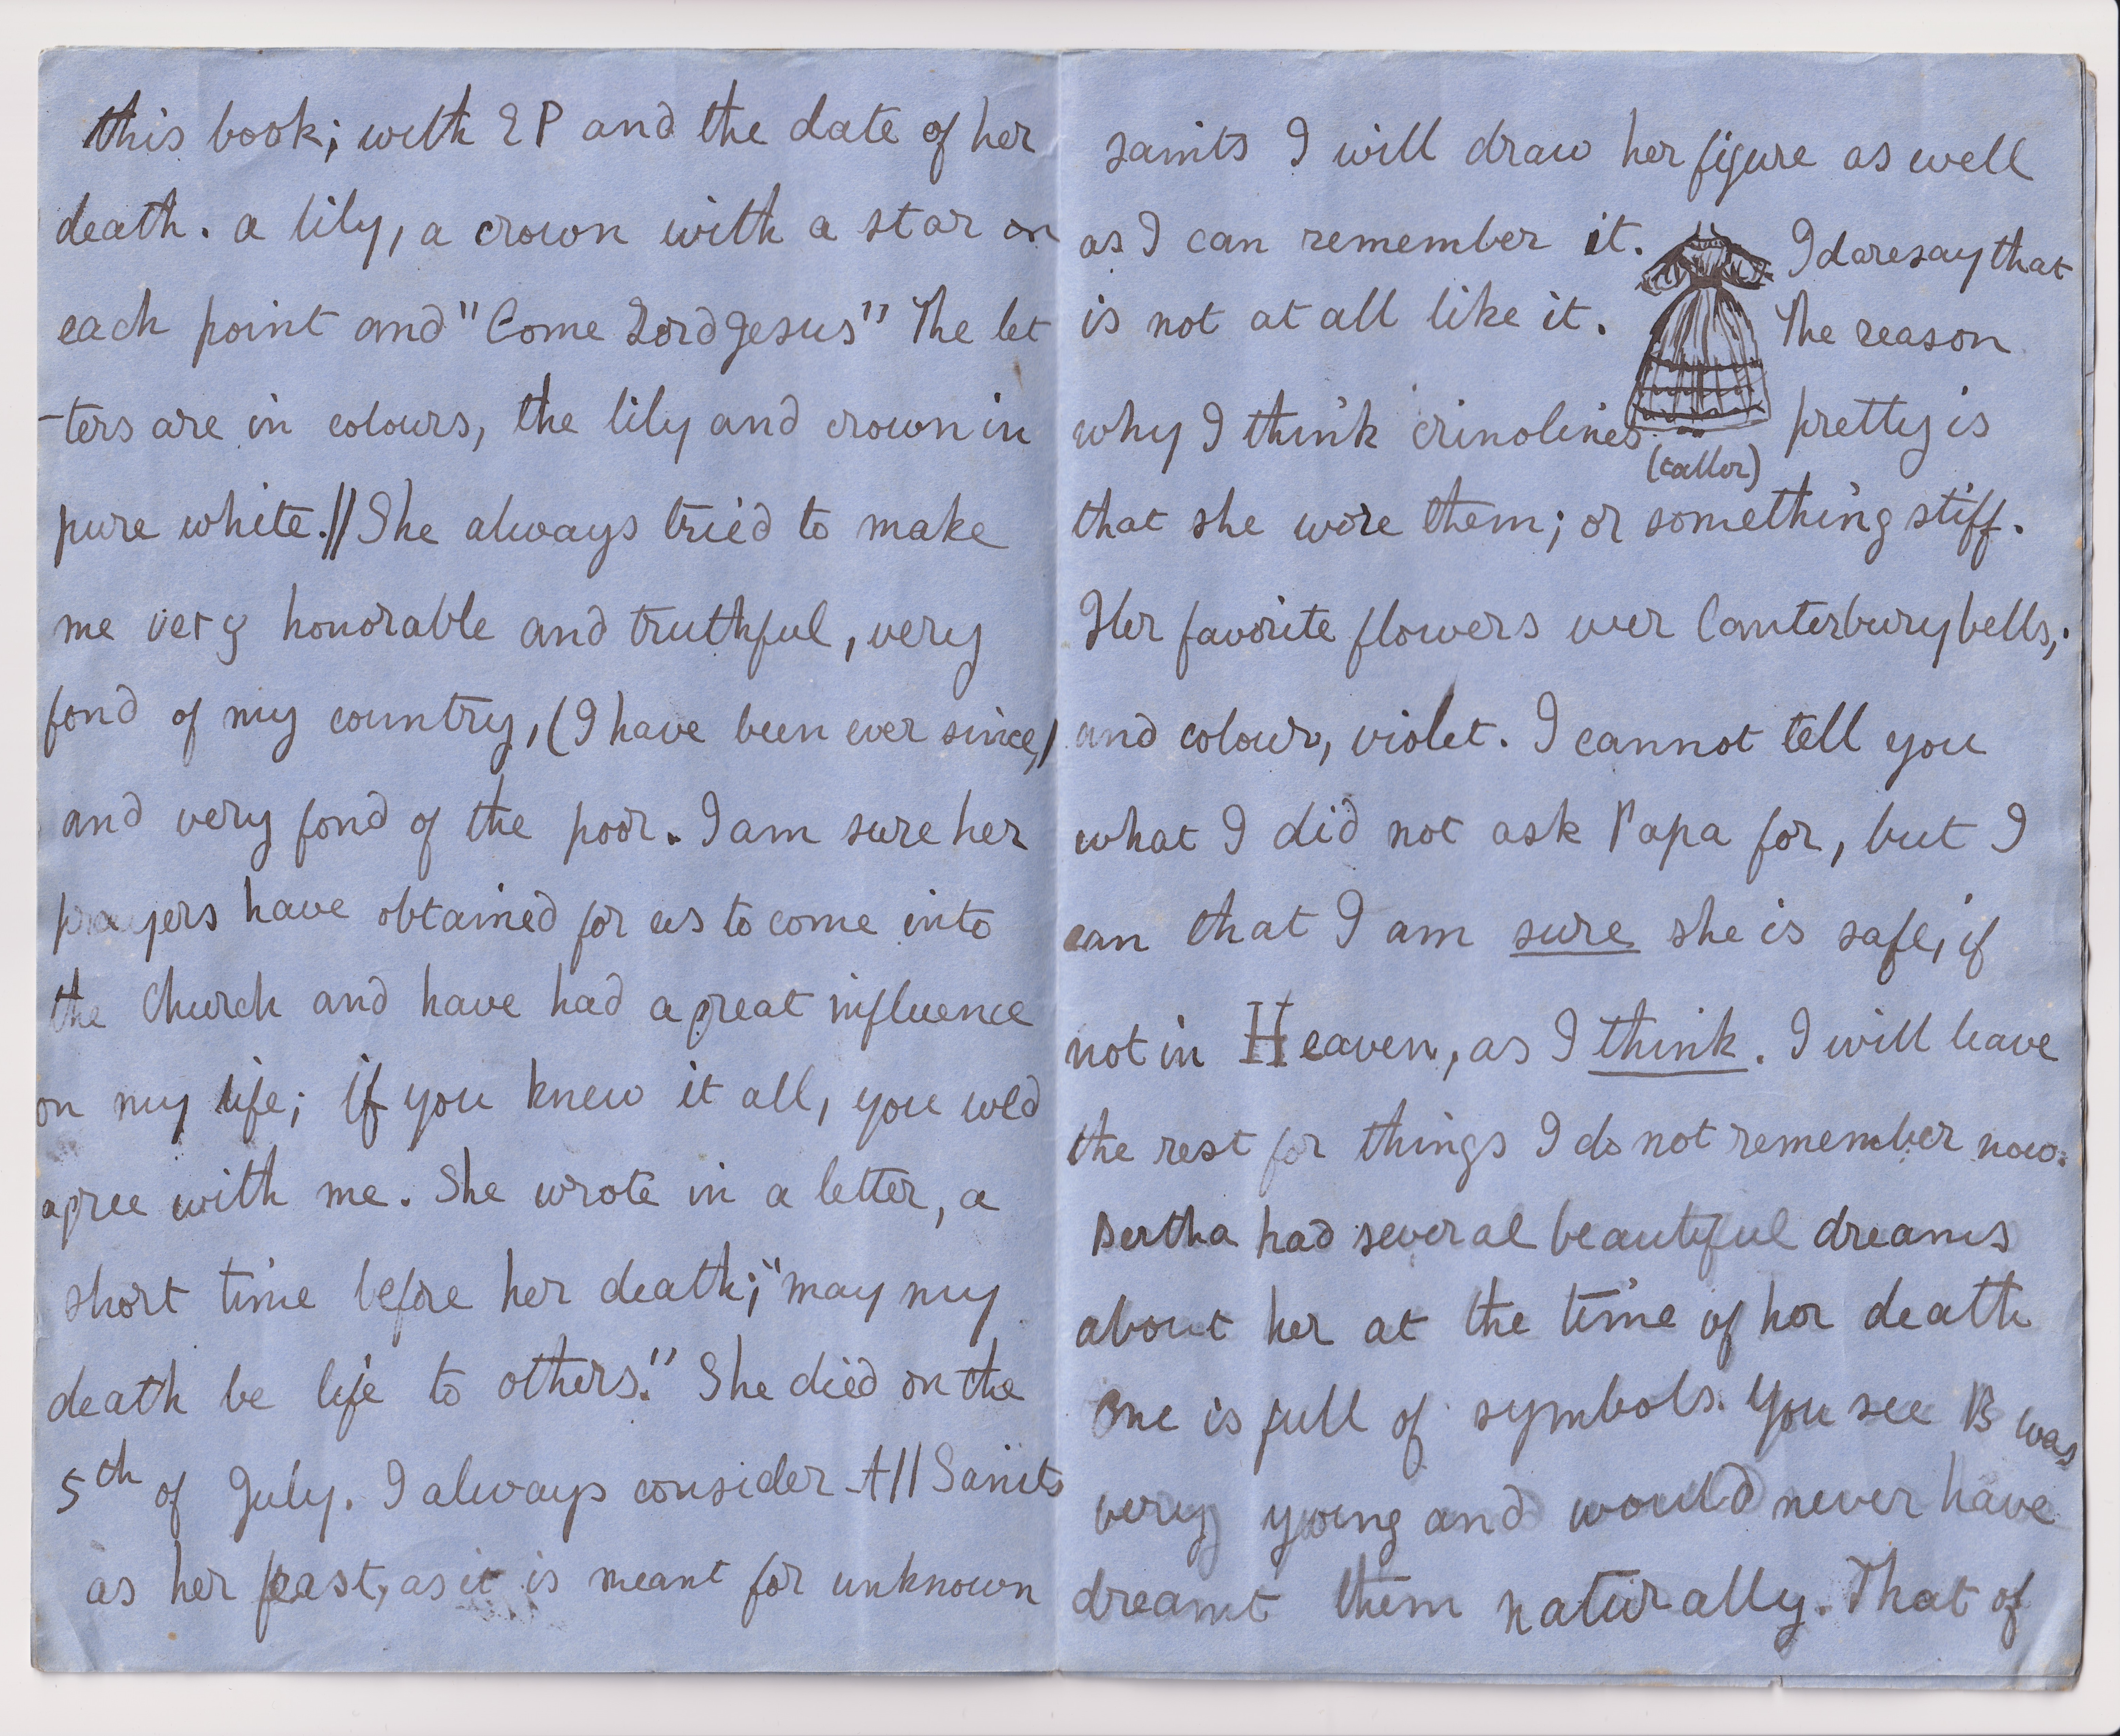 this book; with EP and the date of her
death. a lily, a crown with a star on
each point and "Come Lord Jesus" The let
-ters are in colours, the lily and crown in
pure white.// She always tried to make
me very honorable and truthful, very
fond of my country, (I have been ever since,)
and very fond of the poor. I am sure her
prayers have obtained for us to come into
the Church and have had a great influence
on my life; if you knew it all, you wld
agree with me. She wrote in a letter, a
short time before her death; "may my
death be life to others." She died on the
5th of July. I always consider All Saints
as her feast, as it is meant for unknown
saints I will draw her figure as well
as I can remember it. I daresay that
is not at all like it. The reason
why I think crinolines pretty is
(taller)
that she wore them; or something stiff.
Her favorite flowers wer Canterbury bells,
and colour, violet. I cannot tell you
what I did not ask Papa for, but I
can that I am sure she is safe, if
not in Heaven, as I think. I will leave
the rest for things I do not remember now.
Bertha had several beautiful dreams
about her at the time of her death
One is full of symbols. You see B was
very young and would never have
dreamt them naturally. That of